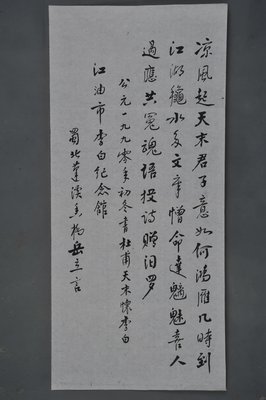 凉风起天末君子意如何鸿雁几时到
江湖秋水多文章憎命达魑魅喜人
过应共冤魂语投诗赠汨罗
公元一九九零年初冬书杜甫天末怀李白
江油市李白纪念馆
蜀北蓬溪 杨岳立言